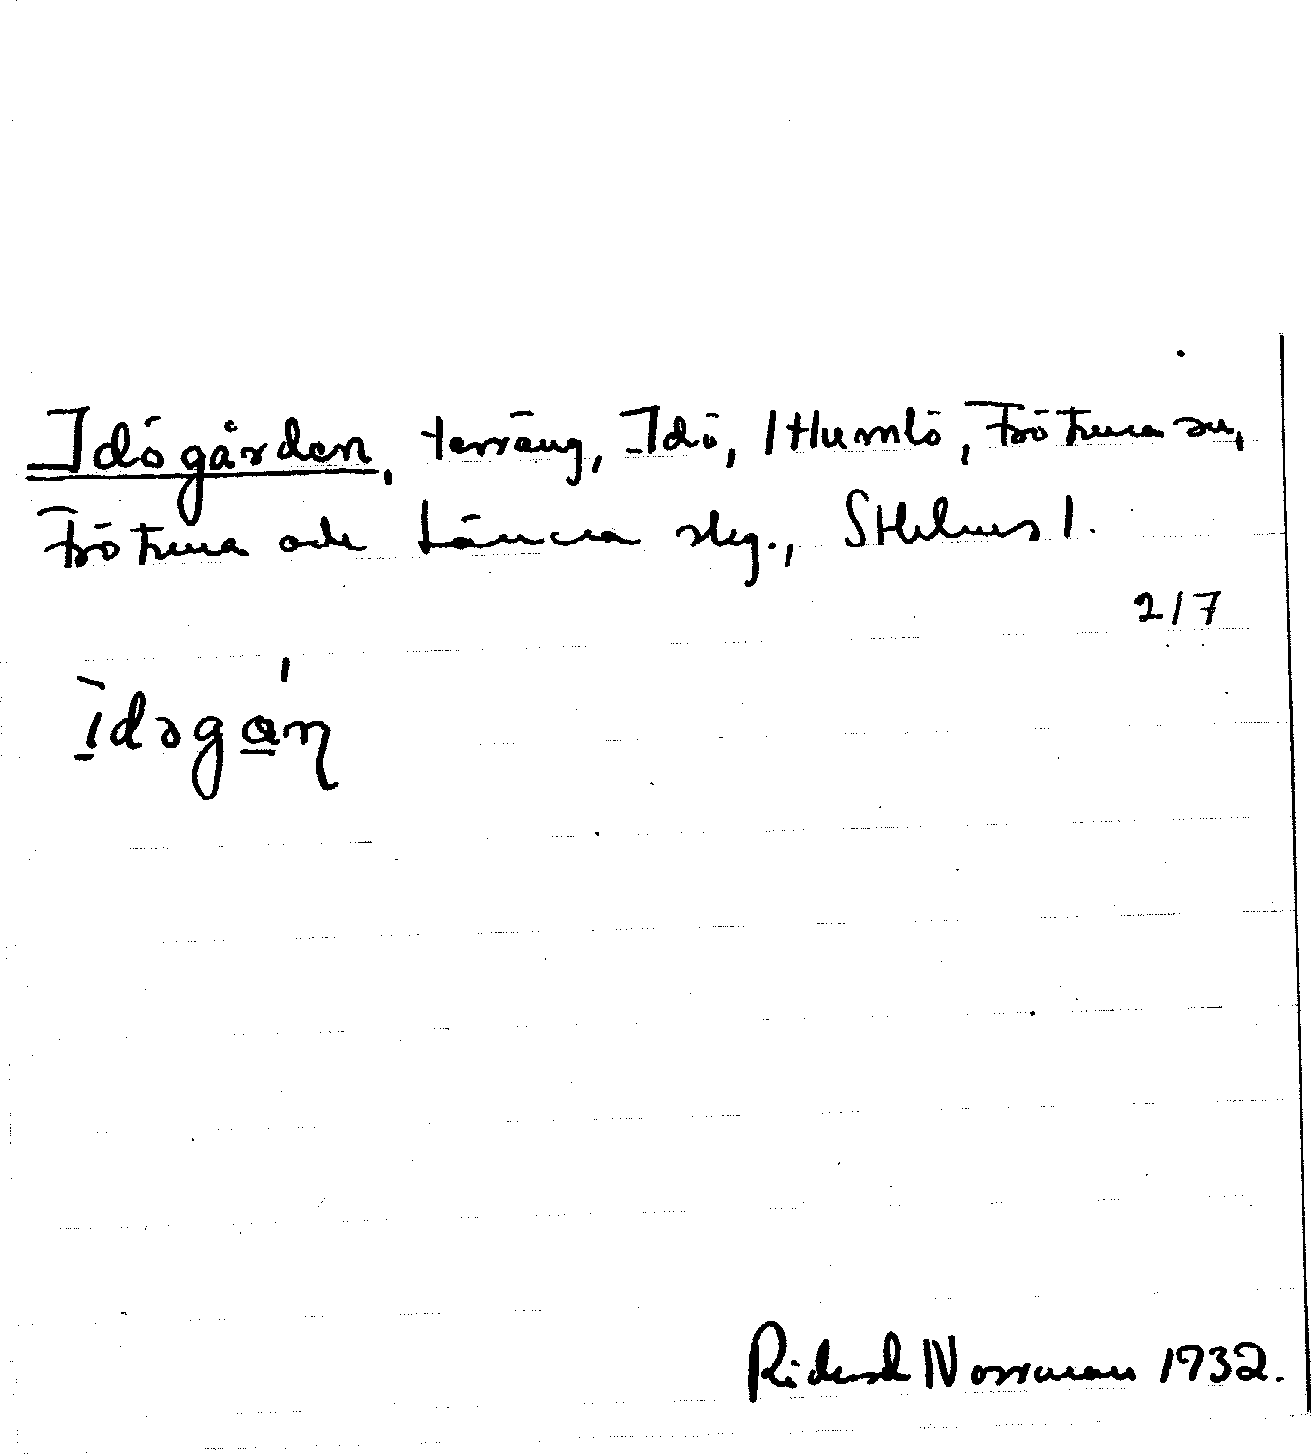 Idögården, terräng, Idö, 1 Humlö, Frötuna sn,
Frötuna och Länna skg., Sthlms l.
2/7
ìdəgά̲ɳ
Rickard Norrman 1932.